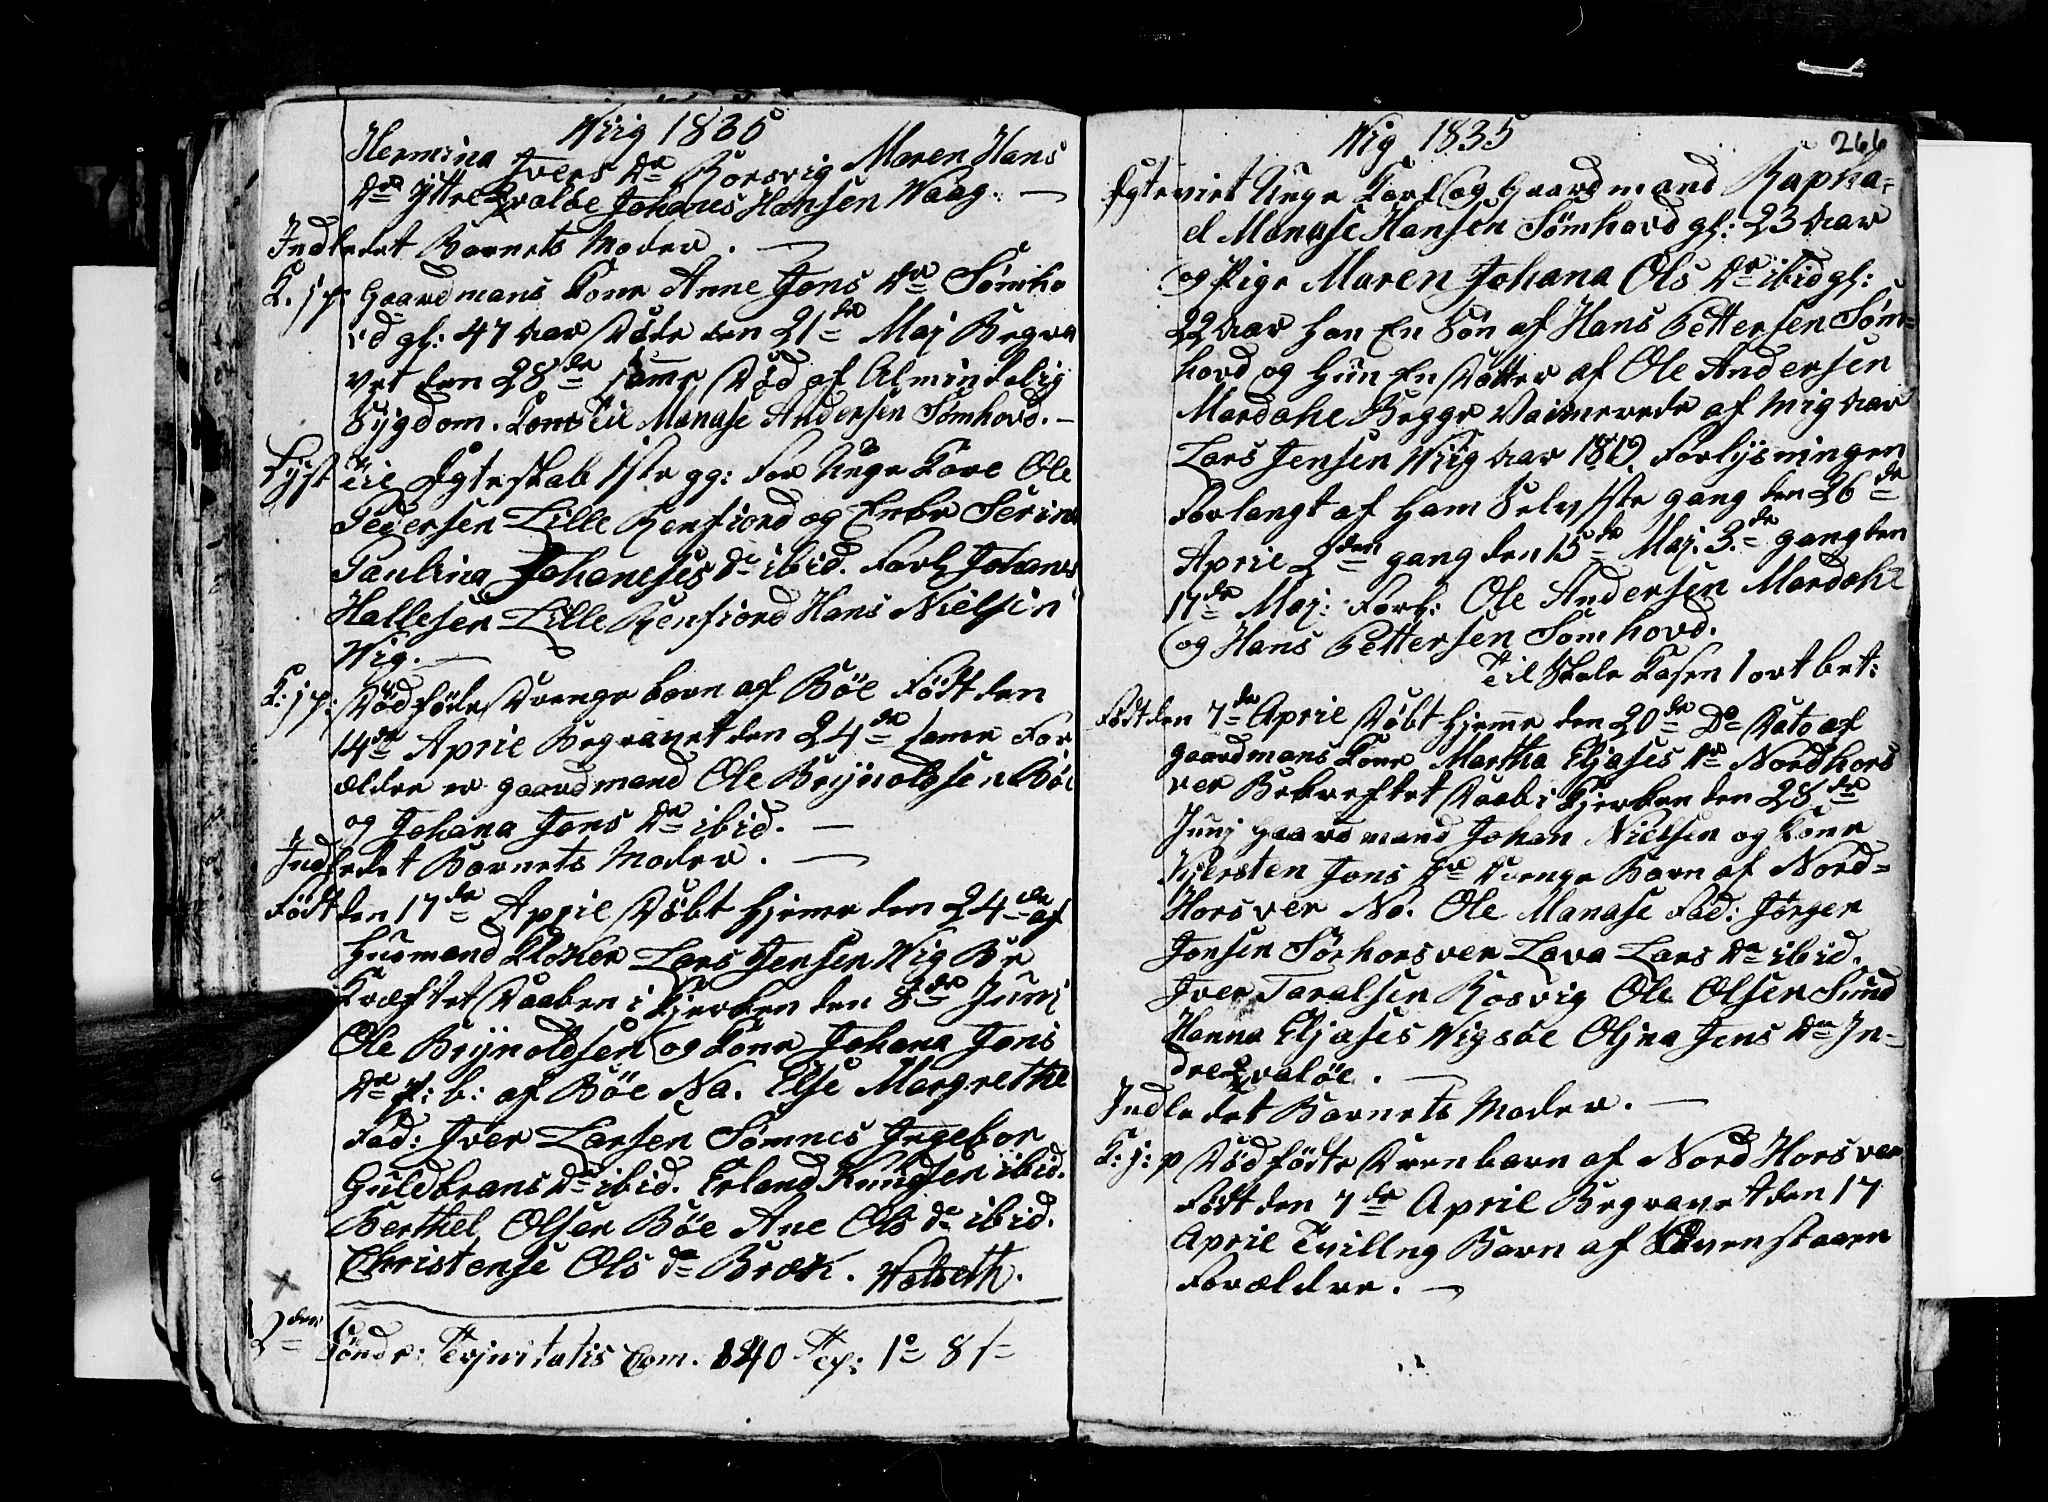 Wiig 1835
Hermina Ivers Dr Rorsvig Maren Hans
Dr Yttre Qvaløe Johanes Hansen Waag. —
Indledet Barnets Moder. —
K. j p: Gaardmans Kone Anne Jons Dr Sømho
vd gl: 47 aar Døde den 21de Maj Begra
vet den 28de samme Død af Almindelig
Sygdom. Kone til Manase Andersen Sømhovd. —
Lyst til Egteskab 1ste gg: for Unge Karl Ole
Pedersen Lille Renfiord og Enke Serina
Paulina Johaneses Dr ibid. Forl Johanes
Hallesen Lille Renfiord Hans Nielsen
Wig. —
K: j p: Dødføde Drenge barn af Bøe Født den
14de April Begravet den 24de same For
ældre er gaardmand Ole Brynoldsen Bøe
og Johana Jons Dr ibid. —
Indledet Barnets Moder. —
Født den 17de April Døbt Hjeme den 24de af
Husmand Kloker Lars Jensen Wig Be
Kræftet Daaben i Kjerken den 8de Juni
Ole Brynoldsen og Kone Johana Jons
Dr p: b: af Bøe Na. Else Margrethe
Fad: Iver Larsen Sømnes Ingebor
Guldbrans Dr ibid. Erland Knudsen ibid.
Berthel Olsen Bøe Ane Ols Dr ibid.
Christense Ols Dr Bræk.
2den Sønd: Trinitatis Com. 140 1 8
Wig 1835
266
Egteviet Unge Karl og Gaardmand Rapha-
el Manase Hansen Sømhovd gl: 23 aar
og Pige Maren Johana Ols Dr ibid gl:
22 aar han En Søn af Hans Pettersen Søm-
hovd og Hun En Datter af Ole Andersen
Mardahl Begge Vaxinerede af mig
Lars Jensen Wiig aar 1819. Forlysningen
Forlangt af Ham Selv 1ste gang den 26de
April 2den gang den 15de Maj. 3de gang den
17de Maj: Forl: Ole Andersen Mardahl
og Hans Pettersen Sømhovd.
Til Skole Kasen 1 ort bet:
Født den 7de April Døbt Hjeme den 20de Do Dato af
gaardmans Kone Martha Eljases Dr Nordhors
ver Bekreftet Daab i Kjerken den 28de
Junj gaardmand Johan Nielsen og Kone
Kjersten Jons Dr Drenge Barn af Nord-
Horsver No. Ole Manase Fad: Jørgen
Jonsen Sørhorsver Lava Lars Dr ibid.
Iver Taralsen Rosvig Ole Olsen Sund
Hanna Eljases Wigsøe Oljna Jens Dr In-
dre Qvaløe. —
Indledet Barnets Moder. —
K: j: p Dødfødte Drenbarn af Nord Horsver
Født den 7de April Begravet den 17
April Tvilling Barn af Ovenstaaen
Forældre. —